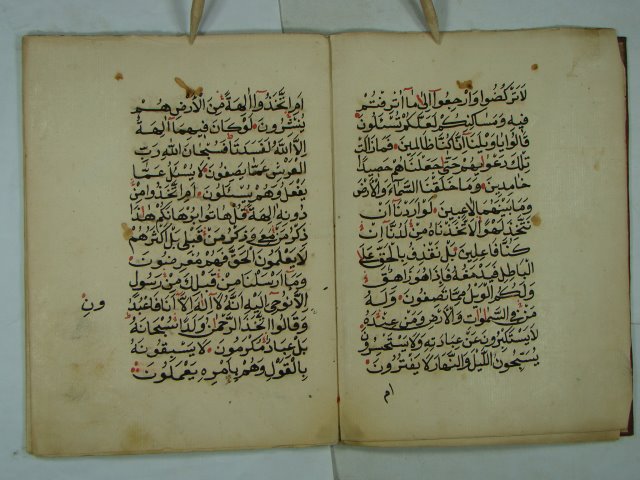 لا تركضوا وارجعوا الى ما اترفتم
فيه ومساكنكم لعلكم تسئلون
قالوا يا ويلنا انا كنا ظالمين فما زالت
تلك دعويهم حتى جعلناهم حصيدا
خامدين وما خلقنا السماء والارض
وما بينهما لاعبين لو اردنا ان
نتخذ لهوا لاتخذناه من لدنا ان
كنا فاعلين بل نقذف بالحق على
الباطل فيدمغه فاذا هو زاهق
ولكم الويل مما تصفون وله
من في السموات والارض ومن عنده
لا يستكبرون عن عبادته ولا يستحسرون
يسبحون الليل والنهار لا يفترون
ام
ام اتخذوا الهة من الارض هم
ينشرون لو كان فيهما الهة
الا الله لفسدتا فسبحان الله رب
العرش عما يصفون لا يسئل عما
يفعل وهم يسئلون ام اتخذوا من
دونه الهة قل هاتوا برهانكم هذا
ذكر من معي وذكر من قبلي بل اكثرهم
لا يعلمون الحق فهم معرضون
وما ارسلنا من قبلك من رسول
الا نوحي اليه انه لا اله الا انا فاعبد
ون
وقالوا اتخذ الرحمن ولدا سبحانه
بل عباد مكرمون لا يسبقونه
بالقول وهم بامره يعملون